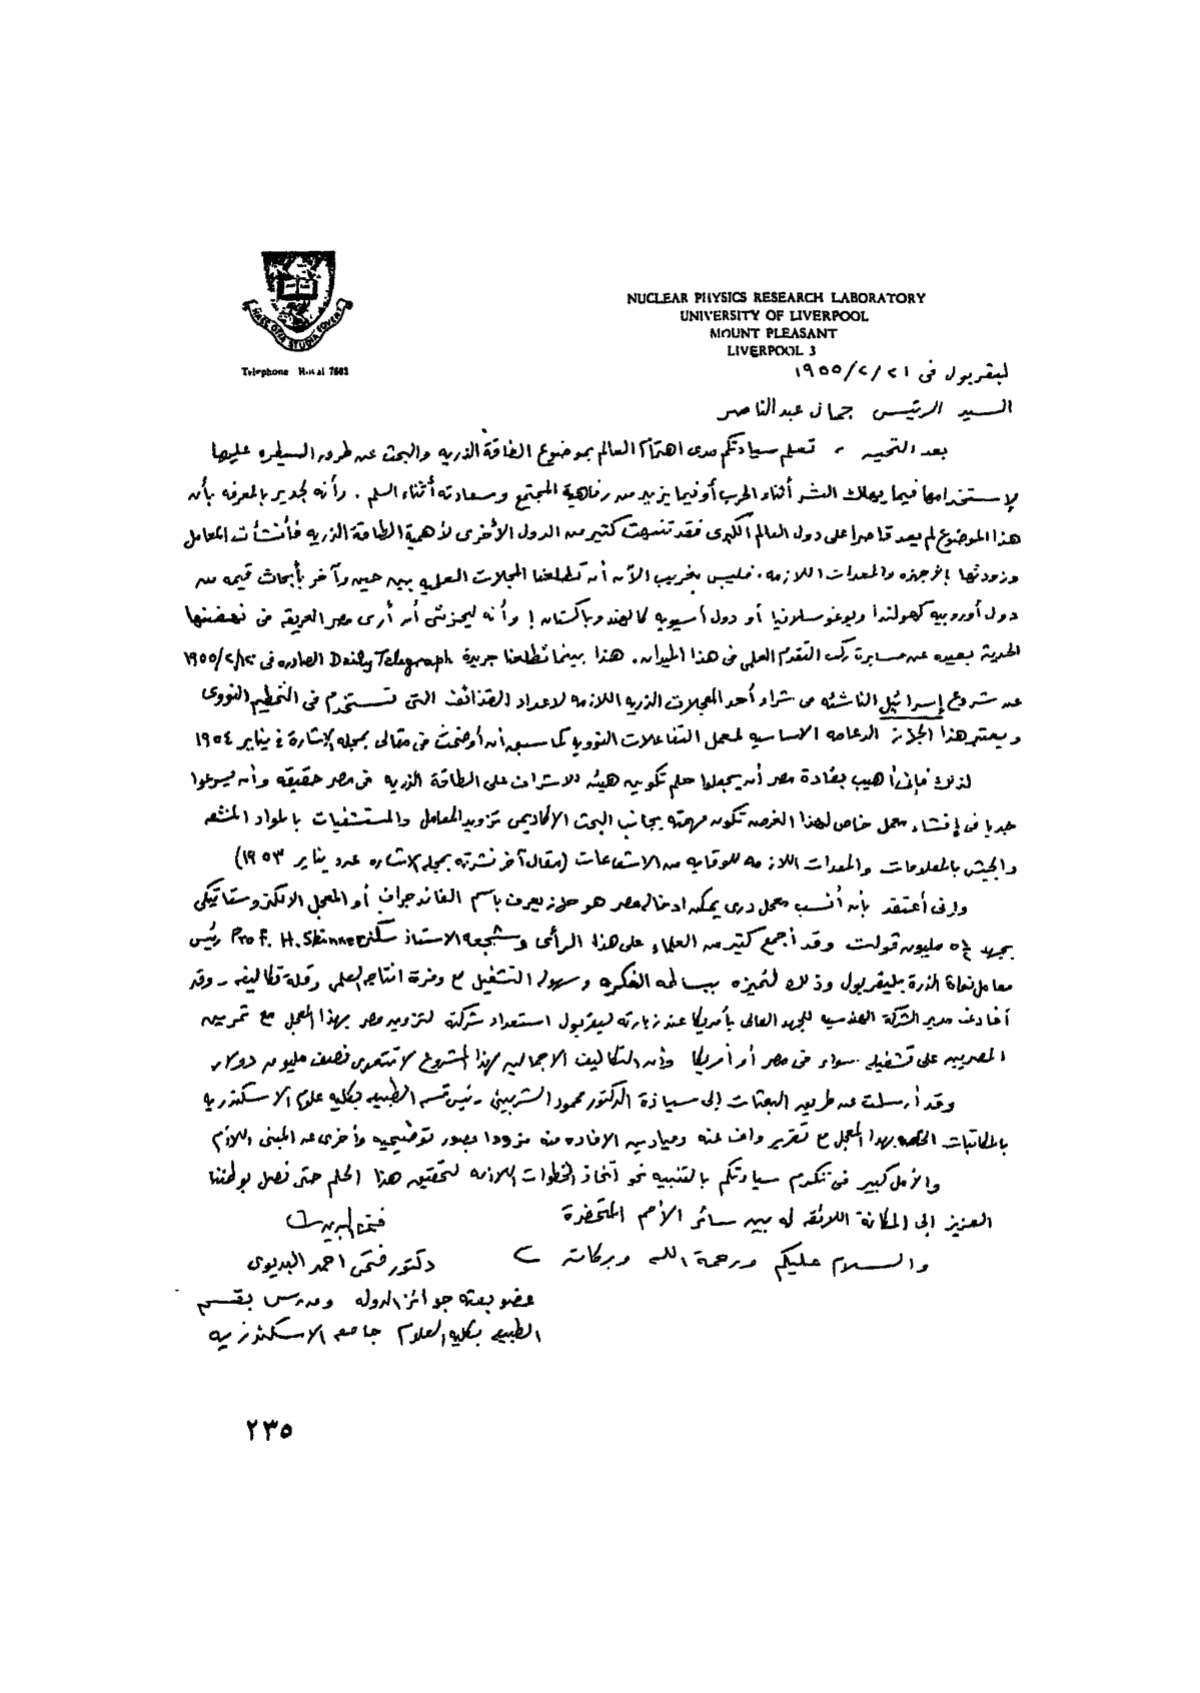 NUCLEAR PHYSICS RESEARCH LABORATORY
UNIVERSITY OF LIVERPOOL
MOUNT PLEASANT
LIVERPOOL 3
HAEC OTIA STUDIA FOVENT
Telephone Royal 7603
ليفربول فى ٢١/٢/١٩٥٥
السيد الرئيس جمال عبدالناصر
بعد التحيه ، تعلم سيادتكم مدى اهتمام العالم بموضوع الطاقة الذريه والبحث عن طرق السيطره عليها
لإستخدامها فيما يهلك البشر أثناء الحرب أو فيما يزيد من رفاهية المجتمع وسعادته أثناء السلم . وأنه لجدير بالمعرفه بأن
هذا الموضوع لم يعد قاصرا على دول العالم الكبرى فقد تنبهت كثير من الدول الأخرى لأهمية الطاقة الذريه فأنشأت المعامل
وزودتها بالأجهزه والمعدات اللازمه . فليس بغريب الآن أن تطلعنا المجلات العلميه بين حين وآخر بأبحاث قيمه من
دول أوروبيه كهولندا ويوغوسلافيا أو دول أسيويه كالهند وباكستان ! وأنه ليحزننى أن أرى مصر العريقه فى نهضتها
الحديثة بعيده عن مسايرة ركب التقدم العلمى فى هذا الميدان . هذا بينما تطلعنا جريدة Daily Telegraph الصادره فى ١٩٥٥/٢/١٢
عن شروع إسرائيل الناشئه فى شراء أحد المعجلات الذريه اللازمه لاعداد القذائف التى تستخدم فى التحطيم النووى
ويعتبر هذا الجهاز الدعامه الاساسيه لمعمل التفاعلات النوويه كما سبق أن أوضحت فى مقالى بمجلة الإشارة فى يناير ١٩٥٤
لذلك فإنى أهيب بقادة مصر أن يجعلوا حلم تكوين هيئه للاشراف على الطاقة الذريه فى مصر حقيقه وأن يسرعوا
جديا فى إنشاء معمل خاص لهذا الغرض تكون مهمته بجانب البحث الأكاديمى تزويد المعامل والمستشفيات بالمواد المشعه
والجيش بالمعلومات والمعدات اللازمه للوقايه من الاشعاعات (مقال آخر نشرته بمجلة الاشاره عدد يناير ١٩٥٣)
وإنى أعتقد بأن أنسب معجل ذرى يمكن ادخاله مصر هو جهاز يعرف باسم الفاندجراف أو المعجل الالكتروستاتيكى
بجهد مليون ڤولت وقد أجمع كثير من العلماء على هذا الرأى وشجعه الاستاذ سكنر Prof. H. Skinner رئيس
معامل نواة الذرة بليفربول وذلك لتميزه ببساطه الفكره وسهوله التشغيل مع وفرة انتاجه العلمى وقلة تكاليفه ـ وقد
أفادنى مدير الشركة الهندسيه للجهد العالى بأمريكا عند زيارته ليفربول استعداد شركته لتزويد مصر بهذا المعجل مع تمرين
المصريين على تشغيله سواء فى مصر أو أمريكا وأن التكاليف الاجماليه لهذا المشروع لا تتعدى نصف مليون دولار
وقد أرسلت عن طريق البعثات إلى سيادة الدكتور محمود الشربينى رئيس قسم الطبيعه بكليه علوم الاسكندريه
بالمكاتبات الخاصه بهذا المعجل مع تقرير واف عنه وميادين الافاده منه مزودا بصور توضيحيه وأخرى عن المبنى اللازم
والأمل كبير فى تكرم سيادتكم بالتنبيه نحو اتخاذ الخطوات اللازمه لتحقيق هذا الحلم حتى نصل بوطننا
العزيز إلى المكانة اللائقه له بين سائر الأمم المتحضرة
والسلام عليكم ورحمة الله وبركاته
فتحى البديوى
دكتور فتحى احمد البديوى
عضو بعثه جوائز الدوله ومدرس بقسم
الطبيعه بكليه العلوم جامعه الاسكندريه
٢٣٥